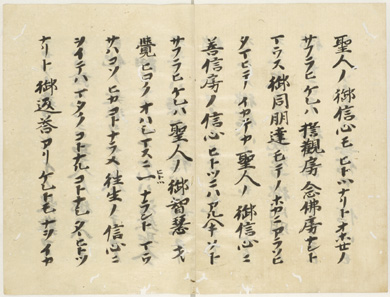 聖人ノ御信心モヒトツナリトオホセノ
サフラヒケレハ 誓觀房 念佛房ナント
マウス御同朋達 モテノホカニアラソヒ
タマヒテ イカテカ聖人ノ御信心ニ
善信房ノ信心 ヒトツニハアルヘキソト
サフラヒケレハ 聖人ノ御智慧 才
覺ヒロクオハシマスニ 一ナラント マウ
サハコソ ヒカコトナラメ 往生ノ信心ニ
ヲイテハ マタクコトナルコトナシ タヽヒトツ
ナリト御返荅アリケレトモ ナヲイカ